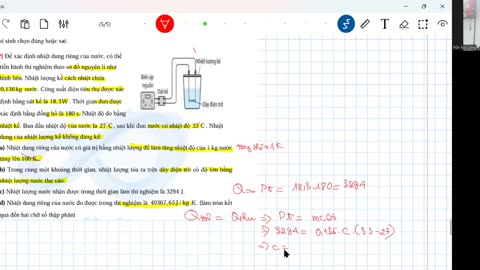 (5/5)
sinh chọn đúng hoặc sai.
Để xác định nhiệt dung riêng của nước, có thể
tiến hành thí nghiệm theo sơ đồ nguyên lí như
hình bên. Nhiệt lượng kế cách nhiệt chứa
0,136 kg nước. Công suất điện tiêu thụ được xác
định bằng oát kế là 18,3W. Thời gian đun được
xác định bằng đồng hồ là 180 s. Nhiệt độ đo bằng
nhiệt kế. Ban đầu nhiệt độ của nước là 27°C, sau khi đun nước có nhiệt độ 33°C. Nhiệt
dung của nhiệt lượng kế không đáng kể.
Nhiệt lượng kế
Biến áp
nguồn
Oát kế
Dây điện trở
a) Nhiệt dung riêng của nước có giá trị bằng nhiệt lượng để làm tăng nhiệt độ của 1 kg nước
tăng lên 100 K.
b) Trong cùng một khoảng thời gian, nhiệt lượng tỏa ra trên dây điện trở có độ lớn bằng
nhiệt lượng nước thu vào.
c) Nhiệt lượng nước nhận được trong thời gian làm thí nghiệm là 3294 J.
d) Nhiệt dung riêng của nước đo được trong thí nghiệm là 40367,65 J/kg.K. (làm tròn kết
quả đến hai chữ số thập phân)
Q = Pt = 18,3.180 = 3294
Qtoả = Qthu => Pt = mcΔt
=> 3294 = 0,136.C.(33-27)
=> c =